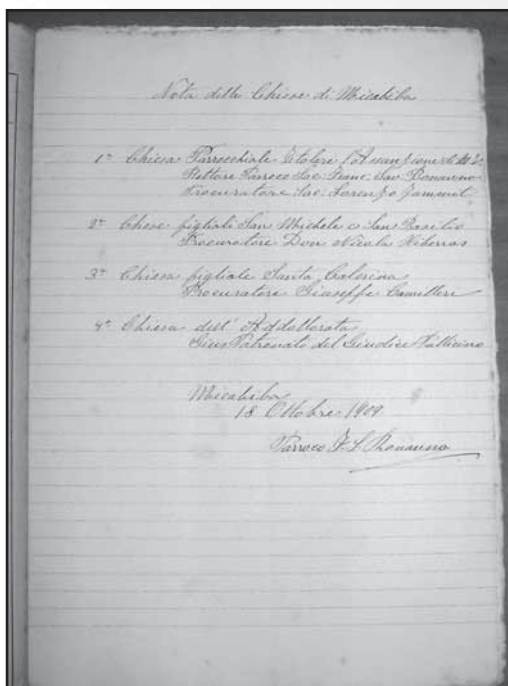 Nota delle Chiese di Micabiba
1° Chiesa Parrocchiale Titolare l'Assunzione di M. V.
Rettore Parroco Sac. Franc. Sav. Bonavino
Procuratore Sac. Lorenzo Zammit
2° Chiese figliali San Michele e San Basilio
Procuratore Don Nicola Xiberras
3° Chiesa figliale Santa Caterina
Procuratore Giuseppe Camilleri
4° Chiesa dell' Addolorata
Gius Patronato del Giudice
Micabiba
18 Ottobre 1909
Parroco F. S.